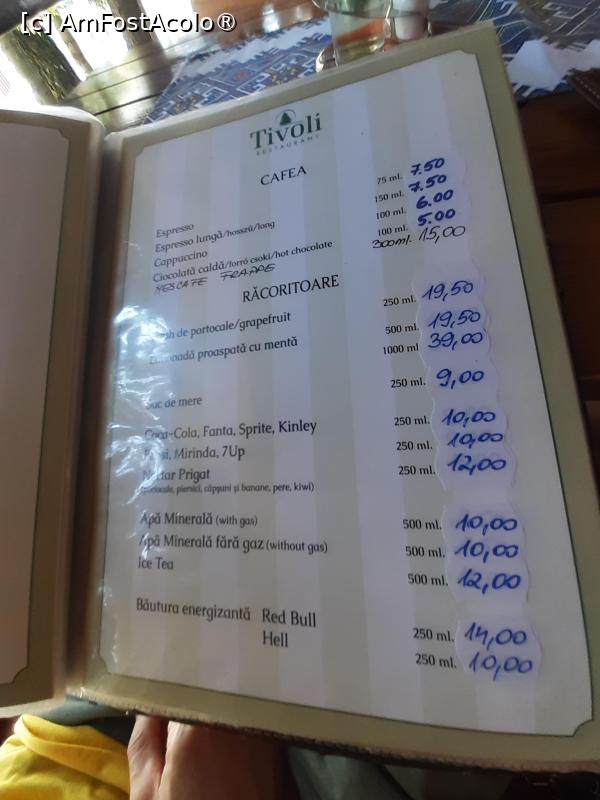 [c] AmFostAcolo®
Tivoli
RESTAURANT
CAFEA
Espresso 75 ml. 7.50
Espresso lungă/hosszú/long 150 ml. 7.50
Cappuccino 100 ml. 6.00
Ciocolată caldă/forró csoki/hot chocolate 100 ml. 5.00
NESCAFE FRAPPE 300ml. 15,00
RĂCORITOARE
de portocale/grapefruit 250 ml. 19,50
proaspată cu mentă 500 ml. 19,50
1000 ml 39,00
Suc de mere 250 ml. 9,00
Coca-Cola, Fanta, Sprite, Kinley 250 ml. 10,00
Pepsi, Mirinda, 7Up 250 ml. 10,00
Nectar Prigat 250 ml. 12,00
(portocale, piersici, căpșuni și banane, pere, kiwi)
Apă Minerală (with gas) 500 ml. 10,00
Apă Minerală fără gaz (without gas) 500 ml. 10,00
Ice Tea 500 ml. 12,00
Băutura energizantă Red Bull 250 ml. 14,00
Hell 250 ml. 10,00